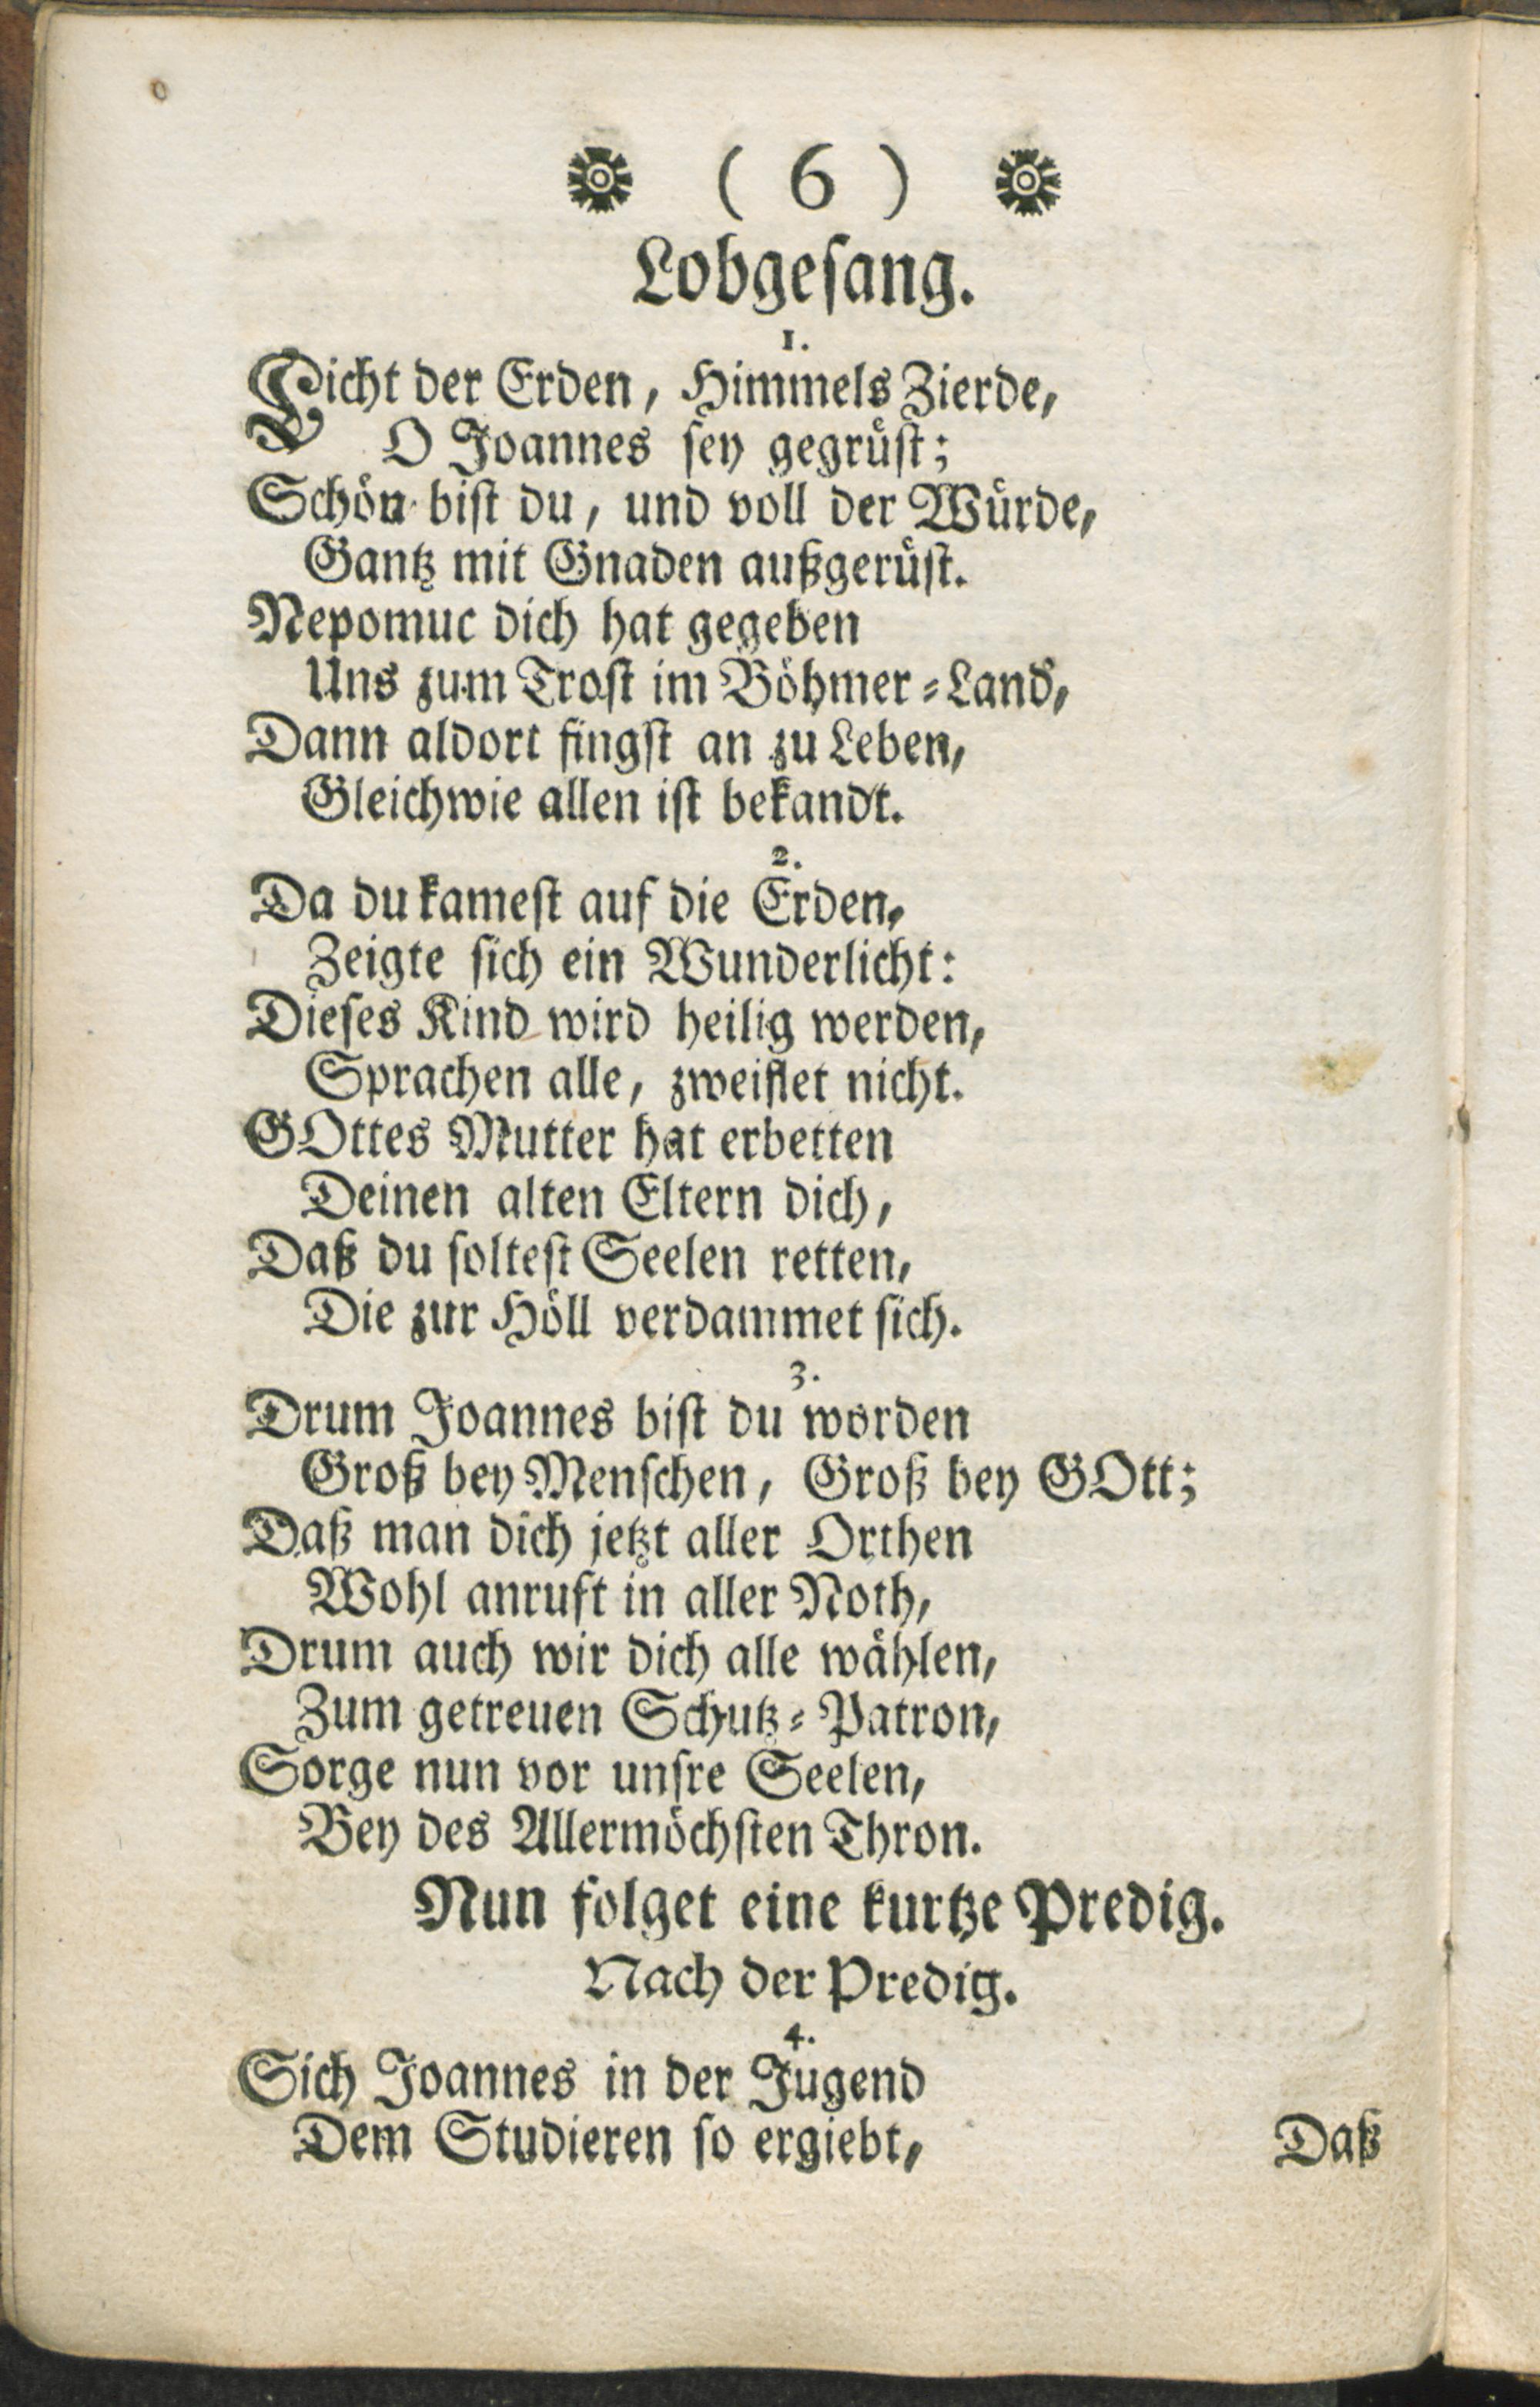 ( 6 )
Lobgesang.
1.
Licht der Erden, Himmels Zierde,
O Joannes sey gegrüst;
Schön bist du, und voll der Würde,
Gantz mit Gnaden außgerüst.
Nepomuc dich hat gegeben
Uns zum Trost im Böhmer-Land,
Dann aldort fingst an zu Leben,
Gleichwie allen ist bekandt.
2.
Da du kamest auf die Erden,
Zeigte sich ein Wunderlicht:
Dieses Kind wird heilig werden,
Sprachen alle, zweiflet nicht.
GOttes Mutter hat erbetten
Deinen alten Eltern dich,
Daß du soltest Seelen retten,
Die zur Höll verdammet sich.
3.
Drum Joannes bist du worden
Groß bey Menschen, Groß bey GOtt;
Daß man dich jetzt aller Orthen
Wohl anruft in aller Noth,
Drum auch wir dich alle wählen,
Zum getreuen Schutz-Patron,
Sorge nun vor unsre Seelen,
Bey des Allermöchsten Thron.
Nun folget eine kurtze Predig.
Nach der Predig.
4.
Sich Joannes in der Jugend
Dem Studieren so ergiebt,
Daß